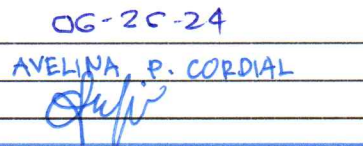 06-25-24
AVELINA P. CORDIAL